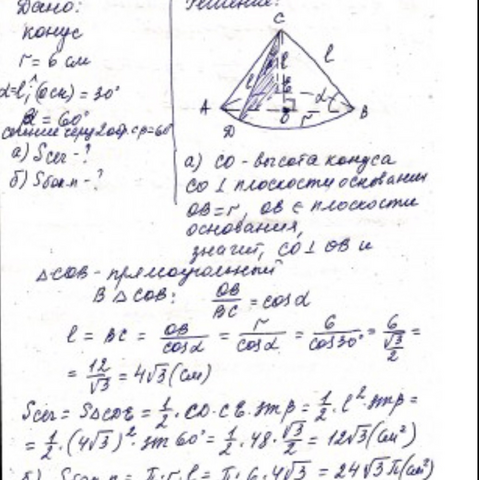 Дано:
конус
r = 6 см
α = l,^(осн) = 30°
β = 60°
сечение через 2 обр. ср = 60°
а) Sсеч - ?
б) Sбок.п - ?
Решение:
C
l
l
A
D
O
r
α
B
а) CO - высота конуса
CO ⊥ плоскости основания
OB = r, OB ∈ плоскости
основания,
значит, CO ⊥ OB и
△COB - прямоугольный
В △COB: OB/BC = cosα
l = BC = OB/cosα = r/cosα = 6/cos30° = 6/(√3/2) =
= 12/√3 = 4√3 (см)
= 1/2 · (4√3)² · sin 60° = 1/2 · 48 · √3/2 = 12√3 (см²)
б) Sбок.п = π · r · l = π · 6 · 4√3 = 24√3 π (см²)